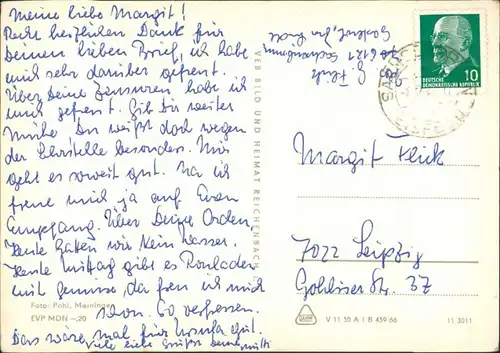 Meine liebe Margit!
Recht herzlichen Dank für
Deinen lieben Brief, ich habe
mich sehr darüber gefreut.
Über Deine Zensuren habe ich
mich gefreut. Gib Dir weiter
Mühe, Du weißt doch wegen
der Lehrstelle besonders. Mir
geht es soweit gut. Na ich
freue mich ja auf Euren
Empfang. Über Deine Orden,
Heute hatten wir kein Wasser.
Heute Mittag gibt es Rouladen
mit Gemüse, da freu ich mich
schon.
Das wäre mal für Ursula gut.
viele liebe Grüße Deine Mutti
Foto: Pohl, Meiningen
EVP MDN –,20
VEB BILD UND HEIMAT REICHENBACH
G. Flick
6121
DEUTSCHE
DEMOKRATISCHE REPUBLIK
10
Margit Flick
7022 Leipzig
Gohliser Str. 37
V 11 50 A 1 B 459 66
11 3011